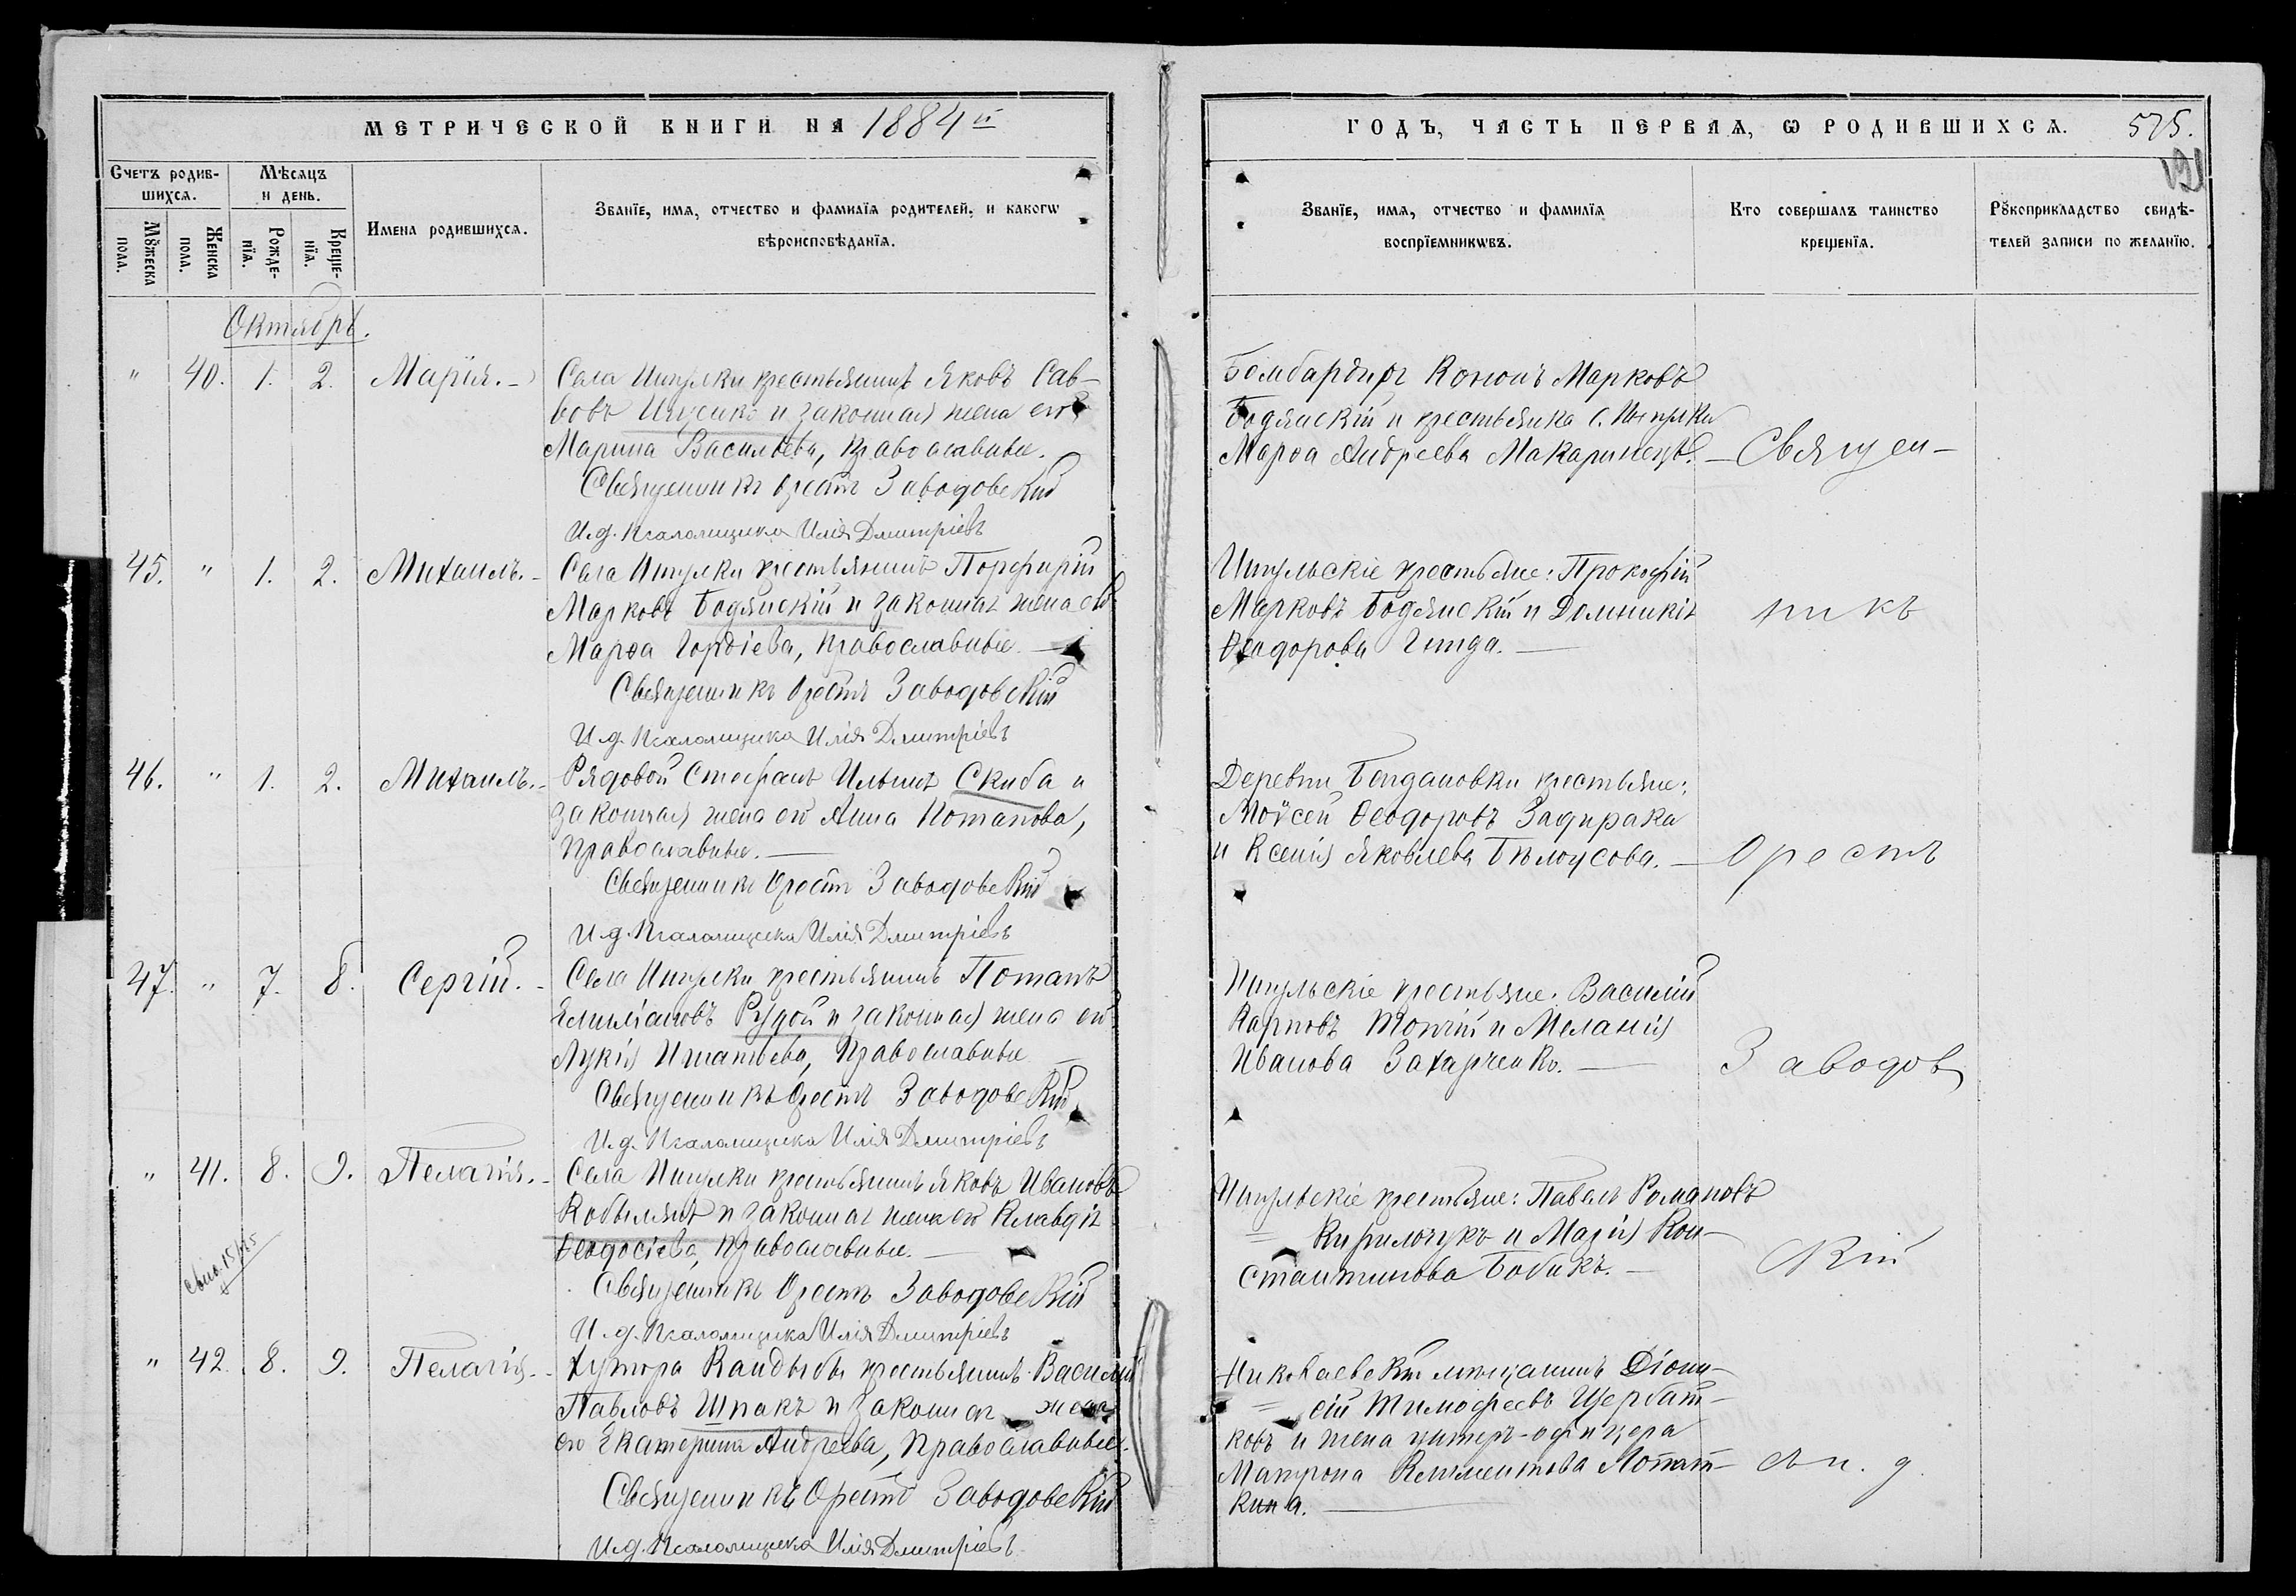 МЕТРИЧЕСКОЙ КНИГИ НА 1884 й
ГОДЪ, ЧАСТЬ ПЕРВАЯ, Ѡ РОДИВШИХСѦ. 575.
121
Счетъ родив-
шихсѧ.
Мѣсѧцъ
и день.
Мꙋжеска
пола.
Женска
пола.
Рожде-
нїѧ.
Креще-
нїѧ.
Имена родившихсѧ.
Званїе, имѧ, отчество и фамилїѧ родителей, и какогѡ
вѣроисповѣданїѧ.
Званїе, имѧ, отчество и фамилїѧ
воспрїемникѡвъ.
Кто совершалъ таинство
крещенїѧ.
Рꙋкоприкладство свидѣ-
телей записи по желанїю.
Октябрь.
" 40. 1. 2. Марія. - Села крестьянинъ Яковъ Сав-
вовъ и законная жена его
Марина Васильева, православные.
Священникъ Орестъ Заводовскій
И. д. Псаломщика Илія Дмитріевъ
Бомбардиръ Кононъ Марковъ
Бодянскій и крестьянка с.
Марѳа Андреева — Священ-
45. " 1. 2. Михаилъ. - Села крестьянинъ Порфирій
Марковъ Бодянскій и законная жена его
Марѳа Гордіева, православные. —
Священникъ Орестъ Заводовскій
И. д. Псаломщика Илія Дмитріевъ
крестьяне: Прокофій
Марковъ Бодянскій и Домникія
Ѳеодорова —
никъ
46. " 1. 2. Михаилъ. - Рядовой Стефанъ Ильинъ Скиба и
законная жена его Анна Потапова,
православные. —
Священникъ Орестъ Заводовскій
И. д. Псаломщика Илія Дмитріевъ
Деревни Богдановки крестьяне:
Моѵсей Ѳеодоровъ Задирака
и Ксенія Яковлева Бѣлоусова. — Орестъ
47. " 7. 8. Сергій. - Села крестьянинъ Потапъ
Емиліановъ Рудой и законная жена его
Лукія Игнатьева, православные —
Священникъ Орестъ Заводовскій
И. д. Псаломщика Илія Дмитріевъ
крестьяне: Василій
Карповъ и Меланія
Иванова Захарченко. — Заводов
" 41. 8. 9. Пелагія. - Села крестьянинъ Яковъ Ивановъ
Кобылянъ и законная жена его Клавдія
Ѳеодосіева, православные. —
Священникъ Орестъ Заводовскій
И. д. Псаломщика Илія Дмитріевъ
крестьяне: Павелъ Романовъ
Кирилочукъ и Марія Кон-
стантинова Бобикъ. —
скій
" 42. 8. 9. Пелагія. - Хутора Кандыбы крестьянинъ Василій
Павловъ Шпакъ и законная жена
его Екатерина Андреева, православные.
Священникъ Орестъ Заводовскій
И. д. Псаломщика Илія Дмитріевъ
Николаевскій мѣщанинъ Діони-
сій Тимофеевъ Щербат-
ковъ и жена унтеръ-офицера
Матрона Климентова Лопат-
кина. —